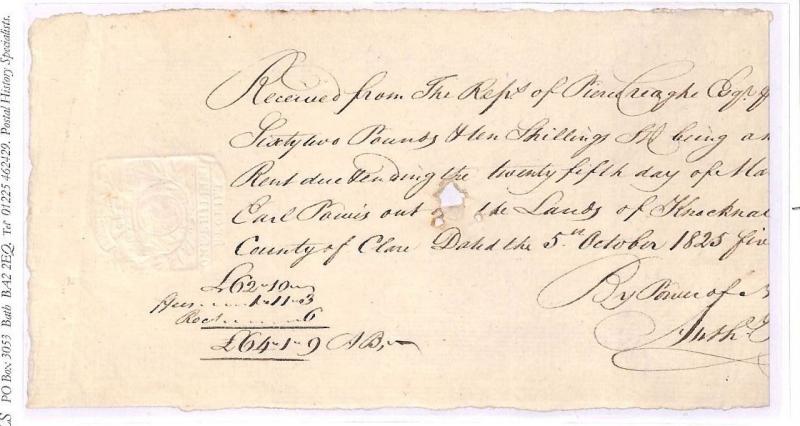 Received from The Reps of Pierce Creaghe Esqr
Sixtytwo Pounds & ten Shillings Stg being a
Rent due & ending the twenty fifth day of Ma
Earl Powis out the Lands of Knockna
County of Clare Dated the 5th October 1825 five
£62-10-
fees 1-11-3
Rect 6
£64-1-9 AB
By Power of
PO Box 3053 Bath BA2 2EQ. Tel 01225 462429. Postal History Specialists.